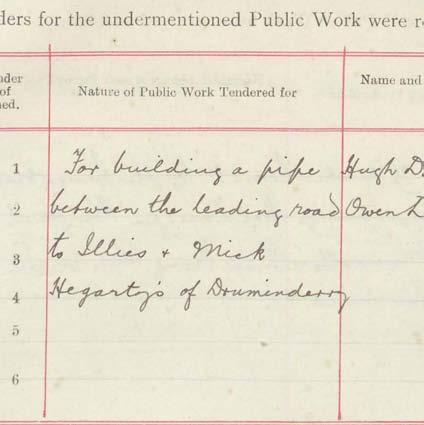 ders for the undermentioned Public Work were r
nder
of
ned.
Nature of Public Work Tendered for
Name and
1 For building a pipe Hugh D.
2 between the leading road Owen L
3 to Illies & Mick
4 Hegarty's of Druminderry
5
6